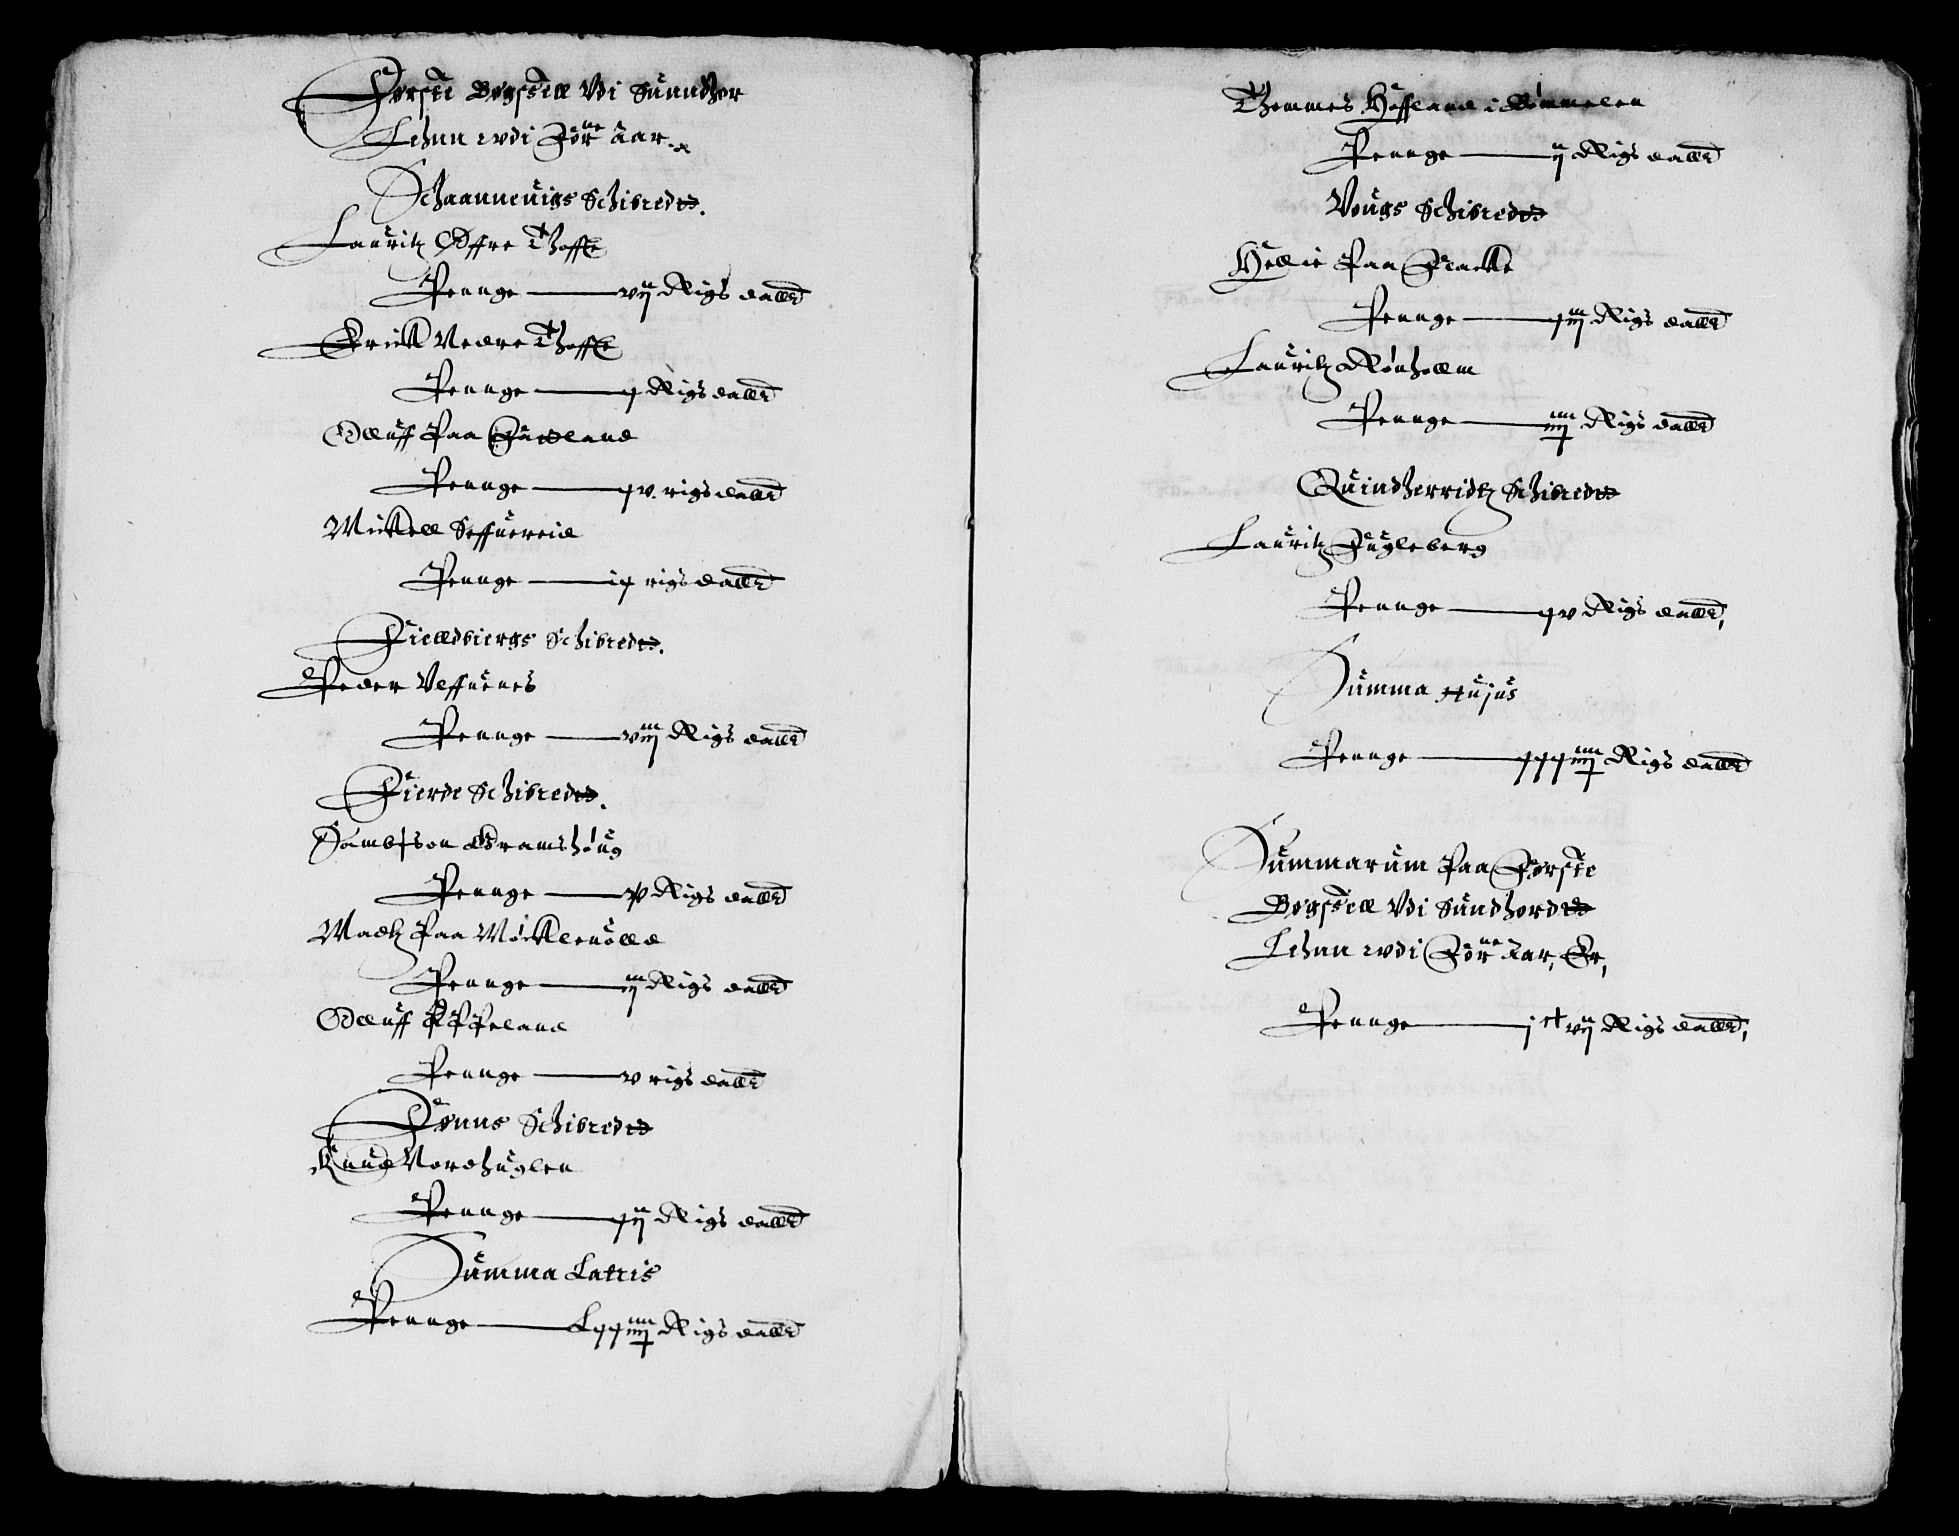 Første Bøgszell Vdi Sunndhor
Lehnn wdi Forne Aar.
Schaanneuigs Schibrede.
Lauritz Øffre Thoffte
Pennge — vij Rigs daller
Erick Nedre Thoffte
Pennge — x Rigs daller
Olluff Paa Fattland
Pennge — xv rigs daller
Mickell Seffuereid
Pennge — ix rigs daller
Fielldbiergs Schibrede.
Peder Vessnenes
Pennge — viij Rigs daller
Fierde Schibrede.
Sambszon Gramshoug
Pennge — v Rigs daller
Madtz Paa Møckleuold
Pennge — iij Rigs daller
Olluff Appeland
Pennge — v rigs daller
Fønns Schibrede
Knud Nordhuglen
Pennge — xij Rigs daller
Summa Lateris
Pennge — Lxxiiij Rigs daller
Thommes Hoffland i Bømmelen
Pennge — ij Rigs daller
Vougs Schibrede
Hellie Paa
Pennge — xiij Rigs daller
Lauritz Rønholm
Pennge — iiij Rigs daller
Quindherridtz Schibrede
Lauritz Fugleberg
Pennge — xv Rigs daller,
Summa Hujus
Pennge — xxxiiij Rigs daller
Summarum Paa Første
Bøgszell Vdi Sundhorde
Lehnn wdi Forne Aar, Er,
Pennge — jct vij Rigs daller,